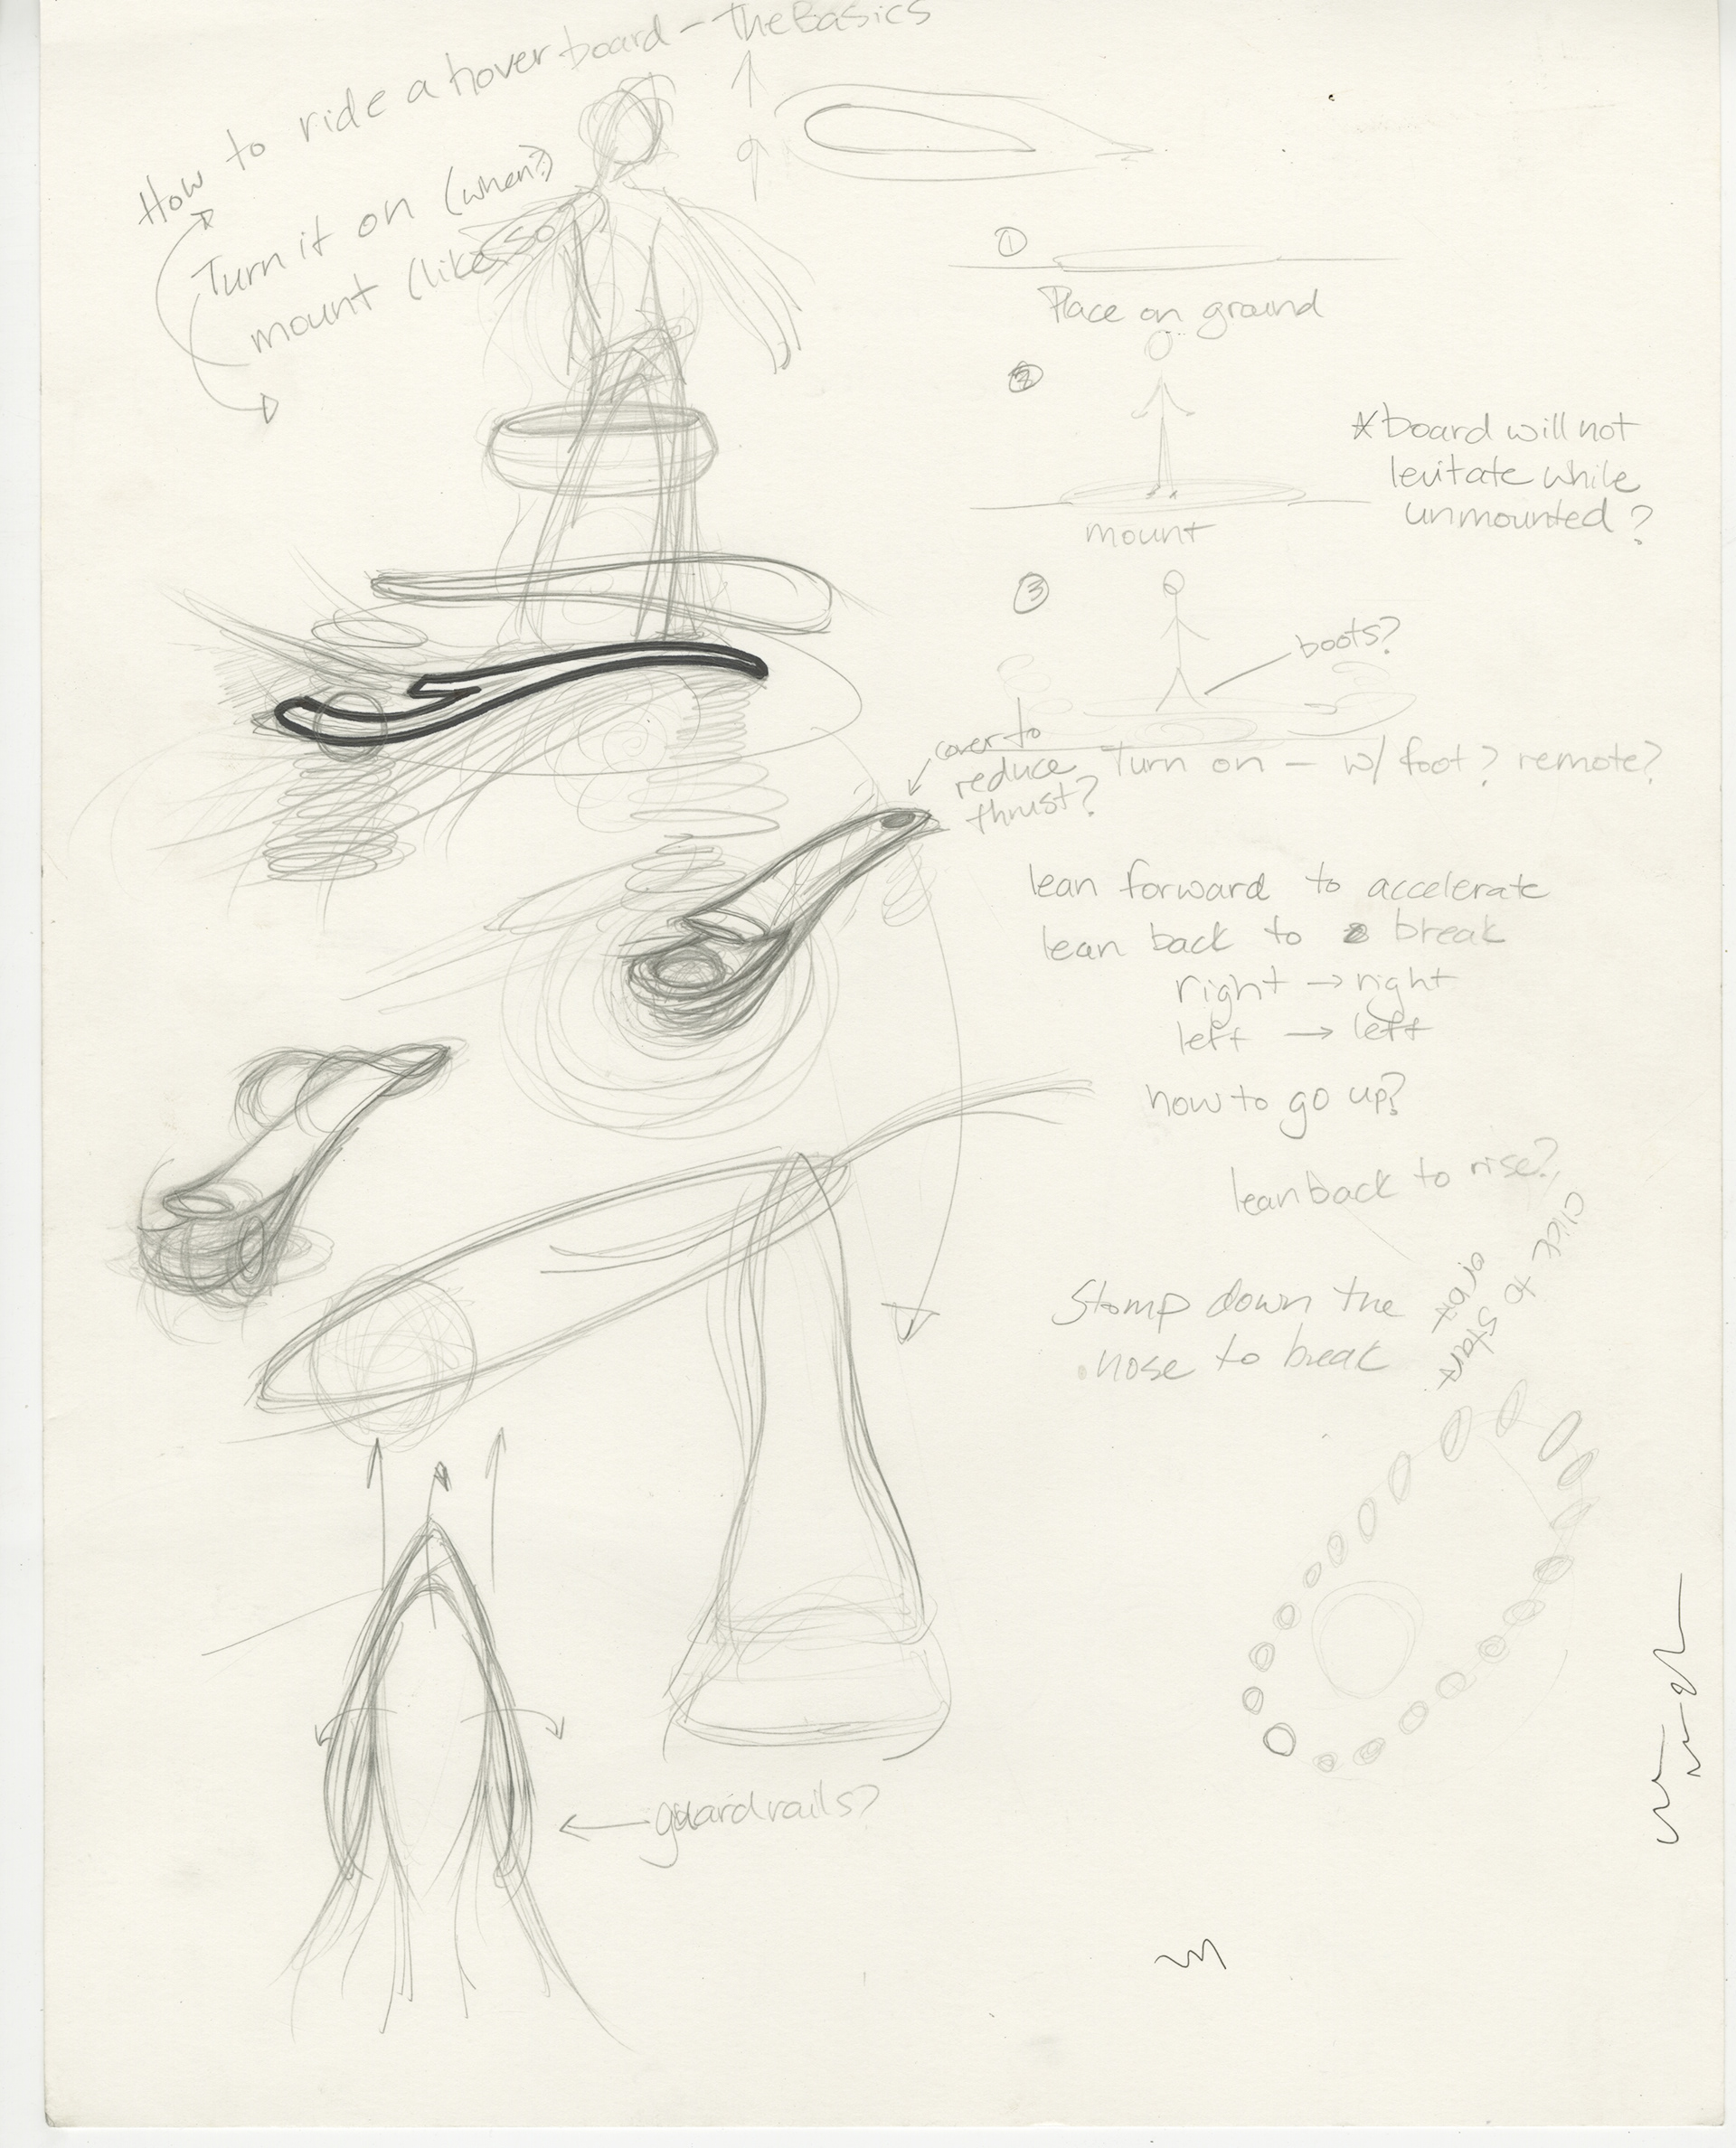 How to ride a hover board - The Basics
Turn it on (when?)
mount (like so
①
Place on ground
②
mount
*board will not
levitate while
unmounted?
③
boots?
Turn on - w/ foot? remote?
cover to
reduce
thrust?
lean forward to accelerate
lean back to break
right → right
left → left
how to go up?
lean back to rise?
click to start
orbit
Stomp down the
nose to break
guardrails?